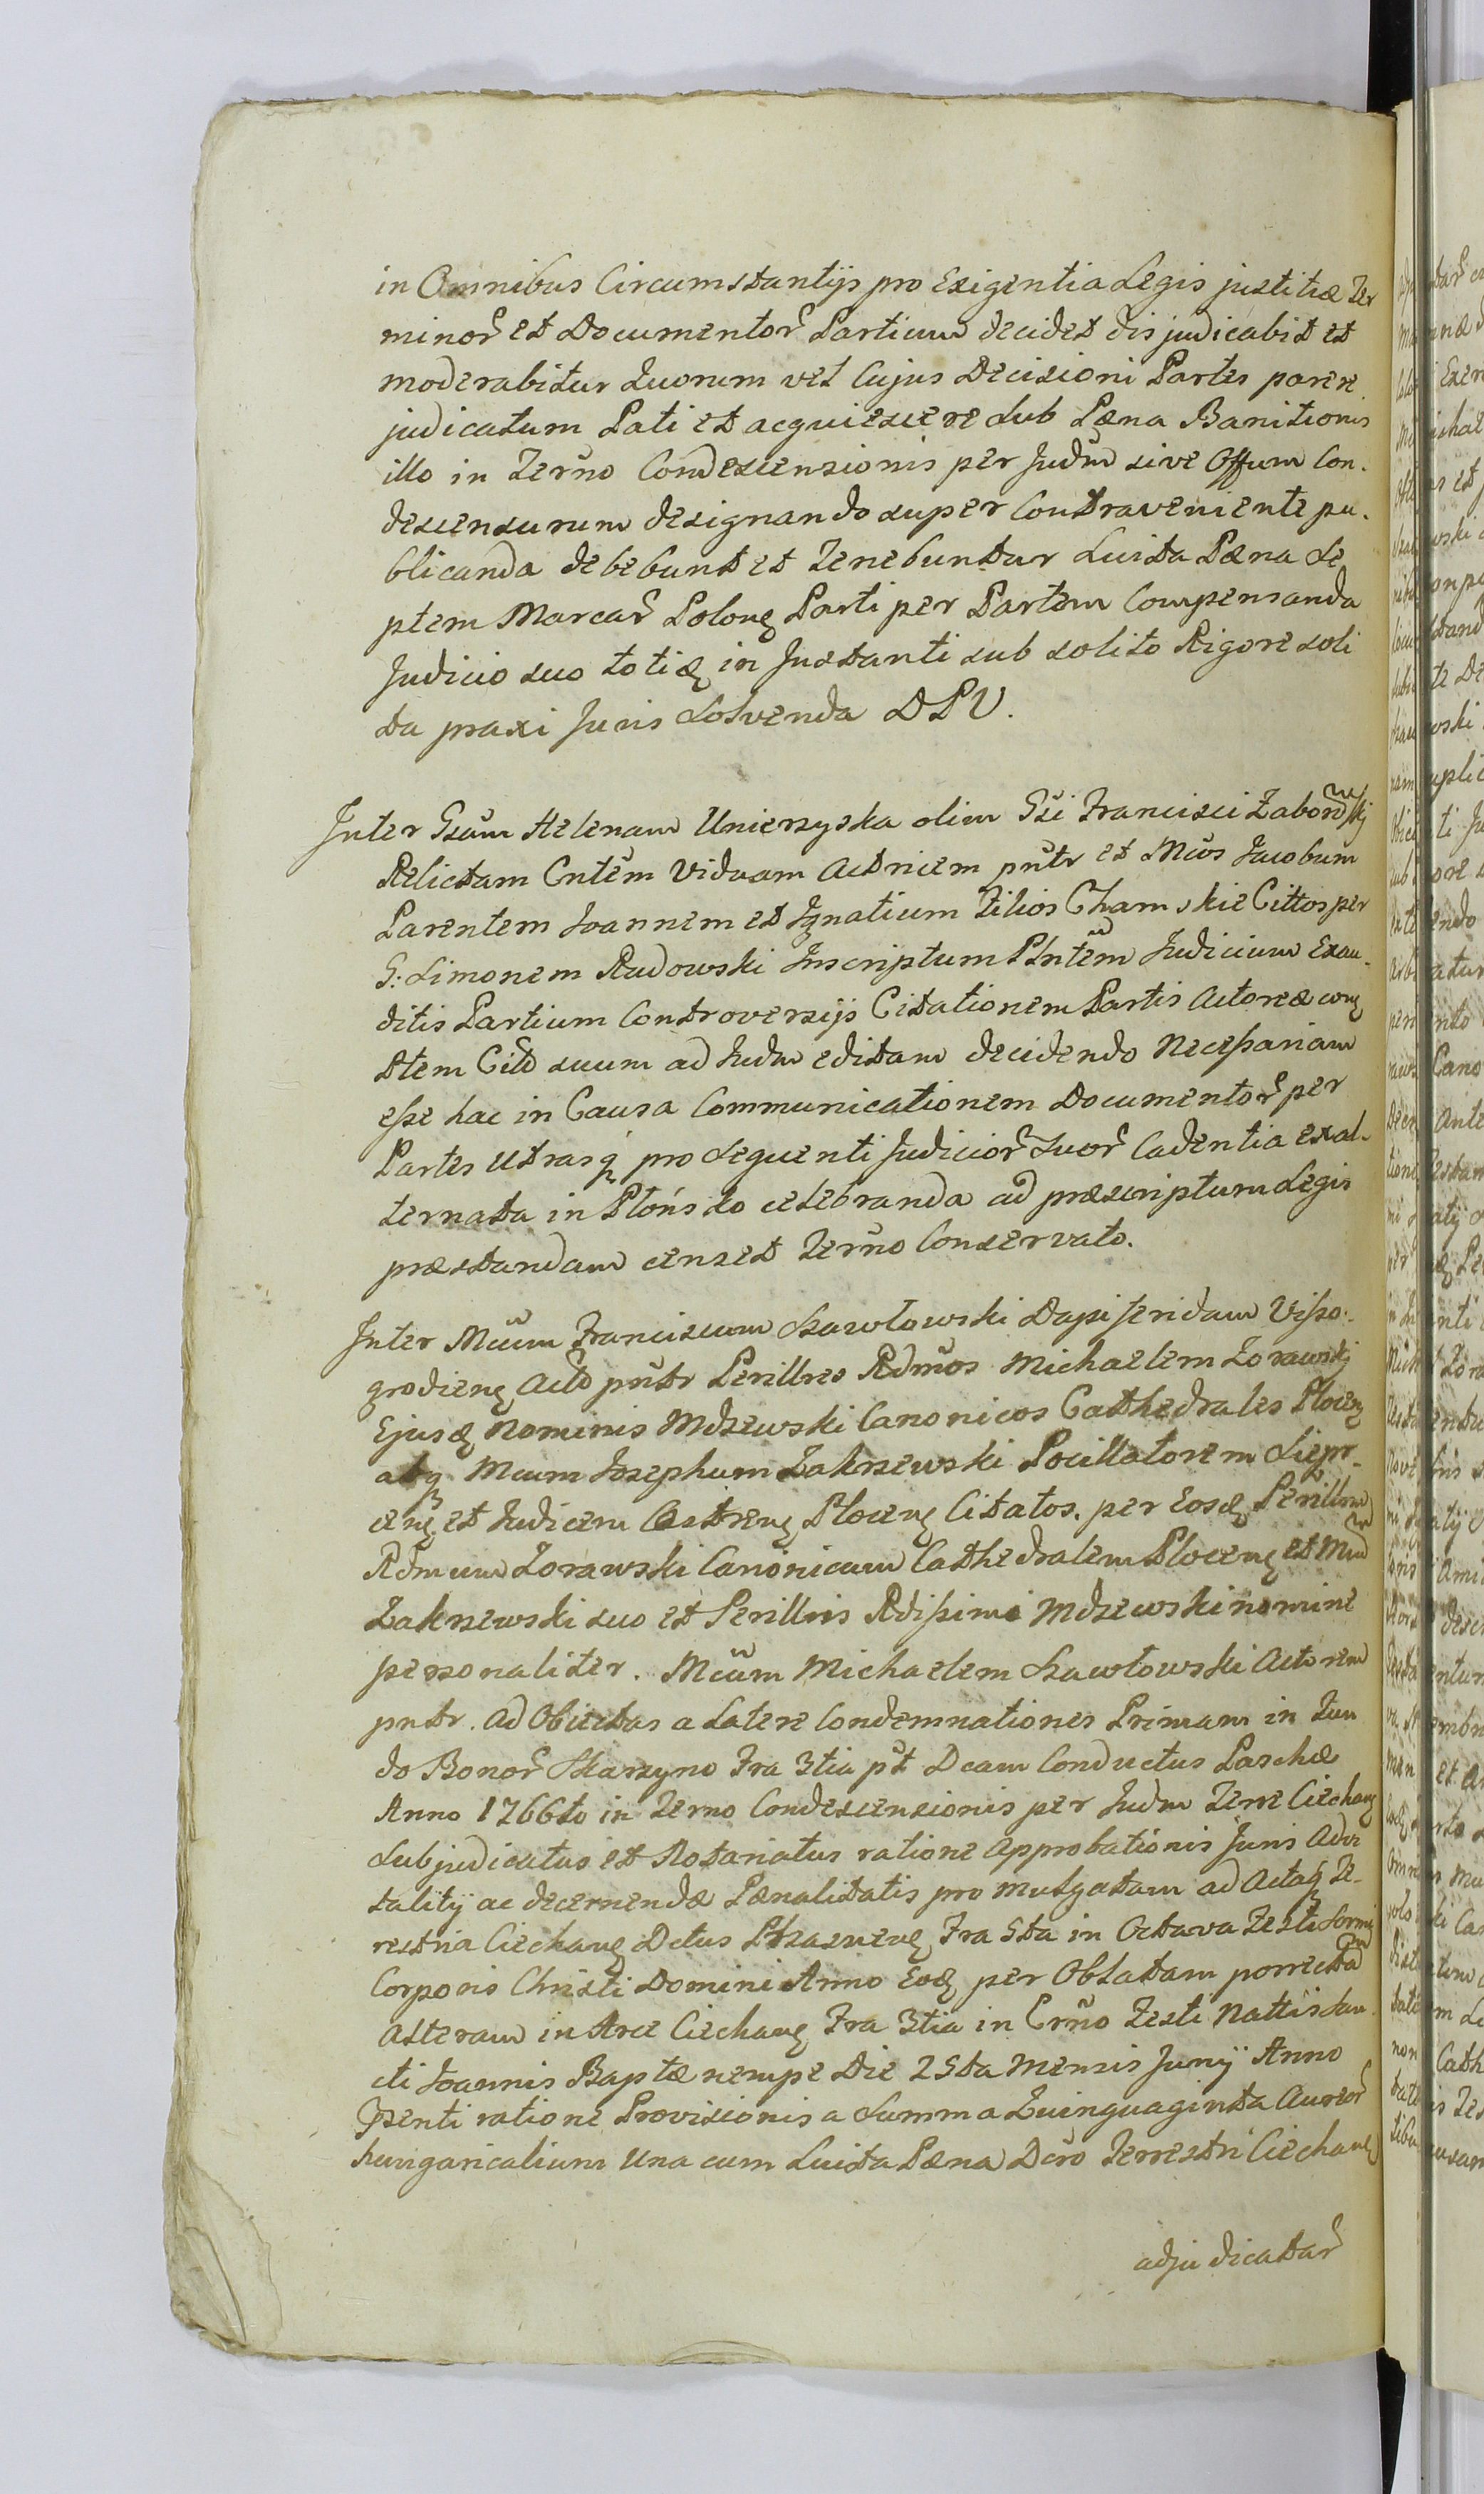 in Omnibus Circumstantijs pro Exigentia Legis justitiæ Ter
minor̃ et Documentor̃ Partium decidet disjudicabit et
moderabitur Quorum vel Cujus Decisioni Partes parere
judicatum Pati et acquiescere sub Pæna Banitionis
illo in Terño Condescensionis per Judm̃ sive Offum Con-
descensurum designando super Contraveniente pu-
blicanda debebunt et Tenebuntur Luita Pæna Se
ptem Marcar̃ Poloną Parti per Partem Compensanda
Judicio suo totię in Instanti sub solito Rigore soli
ta praxi Juris Solvenda DPV.
Inter Gsam̃ Helenam Unierzyska olim Gsi Francisci Zaborowskj
Relictam Cntem̃ Viduam Actricem pntr̃ et Mcos̃ Jacobum
Parentem Joannem et Ignatium Filios Chamskie Cittos per
G: Simonem Rudowski Inscriptum Pntem̃ Judicium Exau-
ditis Partium Controversijs Citationem Partis Actoreæ
Item Cit̃o suum ad Judm editam decidendo Necessariam
esse hac in Causa Communicationem Documentor̃ per
Partes Utrasq pro Sequenti Judicior̃ Suor̃ Cadentia exal-
ternata in Płońsko celebranda ad præscriptum Legis
præstandam censet Terño Conservato.
Inter Mcum̃ Franciscum Szawłowski Dapiferidam Visso-
grodienę Act̃o pntr̃ Perillres Rdmos̃ Michaelem Zorawskj
Ejusę Nominis Mdzewski Canonicos Cathedrales Plocenę
atq Mcum Josephum Zakrzewski Pocillatorem Sierp-
cenę et Judicem Castrenę Plocenę Citatos. per Eosę Perillrm
Rdmum Zorawski Canonicum Cathedralem Plocenę et Mcum̃
Zakrzewski suo et Perillris Rdissimi Mdzewski nomine
personaliter. Mcum̃ Michaelem Szawłowski Actorem
pntr. ad Obiectas a Latere Condemnationes Primam in Fun
do Bonor̃ Skarzyno Fra 3tia pt̃ Dcam Conductus Paschæ
Anno 1766to in Terno Condescensionis per Judm Terræ Ciechanę
Subjudicatus et Notariatus ratione Approbationis Juris Advi
talitÿ ac decernendæ Pænalitatis pro mulgatam ad Actaq Te-
restria Ciechanę Dctus Fra 5ta in Octava Festi Sacrmi
Corporis Christi Domini Anno Eoę per Oblatam porrectam̃
Alteram in Arce Ciechanę Fra 3tia in Crño Festi Nattis San-
cti Joannis Baptæ nempe Die 25ta Mensis Junÿ Anno
Psenti ratione Provisionis a Summa Quinquaginta Aureor̃
hungaricalium Una cum Luita Pæna Dcro̊ Terrestri Ciechanę
adjudicatar̃